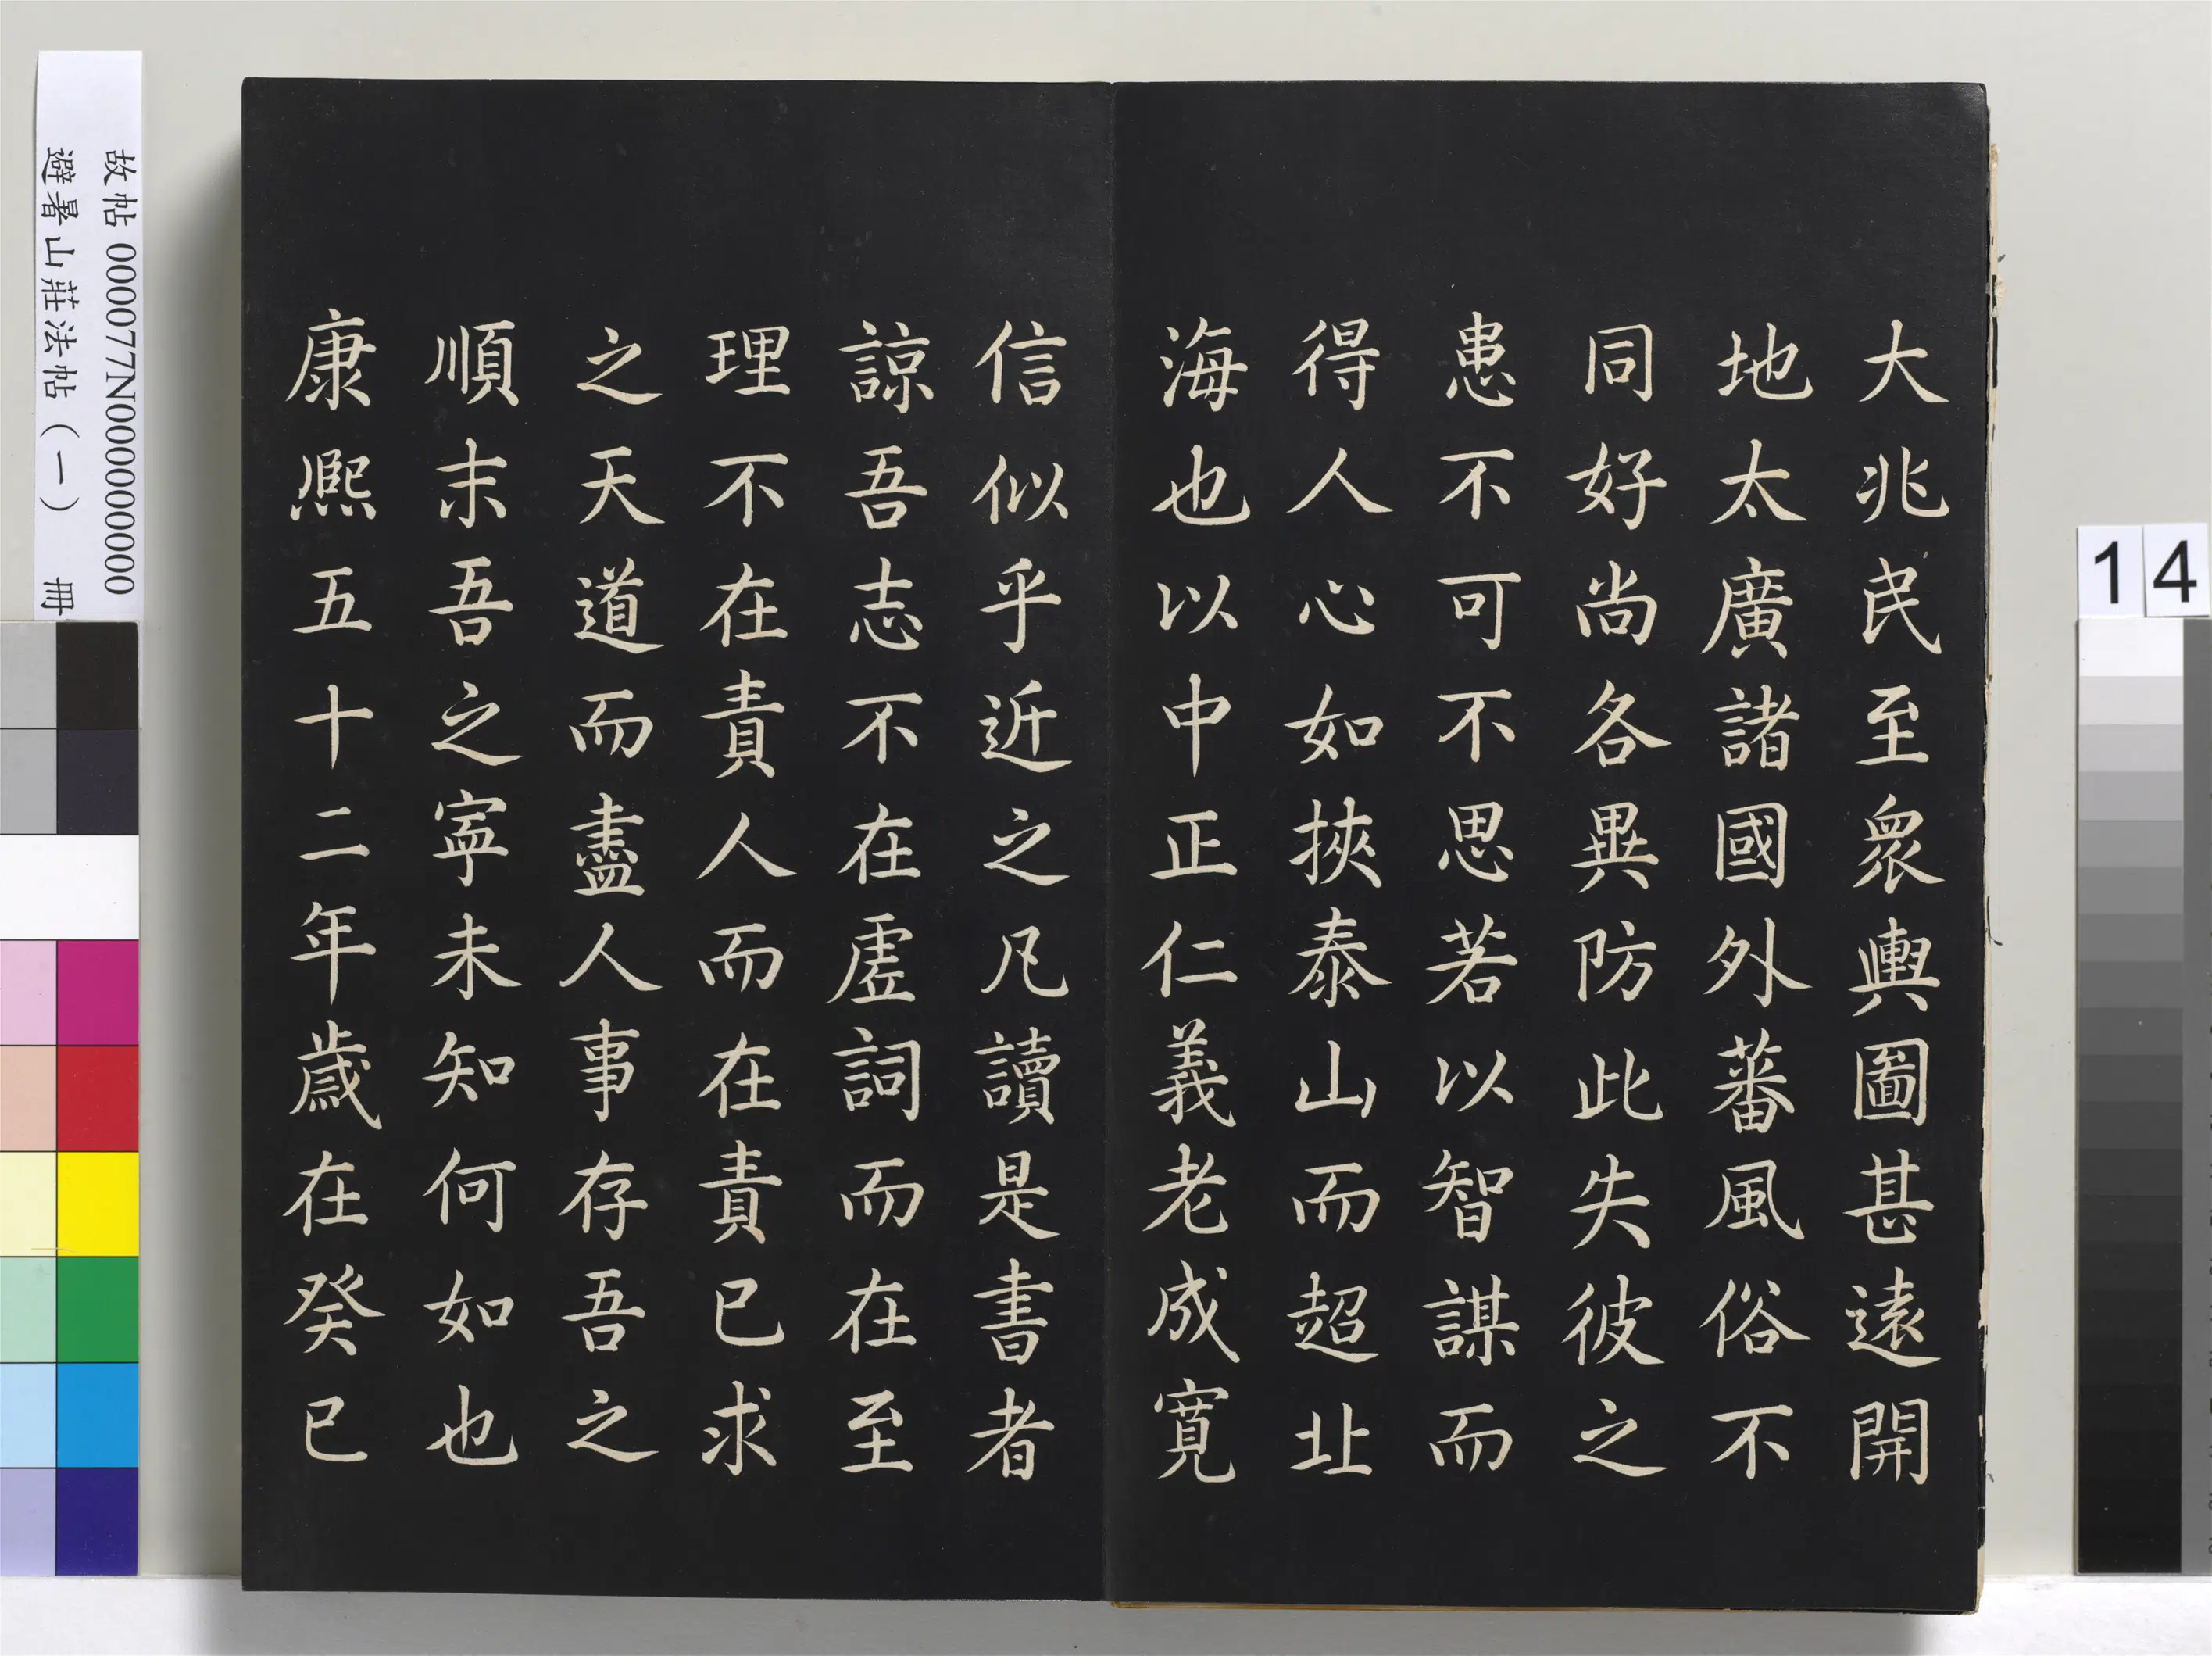 大兆民至衆輿圖甚遠開
地太廣諸國外蕃風俗不
同好尚各異防此失彼之
患不可不思若以智謀而
得人心如挾泰山而超北
海也以中正仁義老成寬
信似乎近之凡讀是書者
諒吾志不在虛詞而在至
理不在責人而在責已求
之天道而盡人事存吾之
順末吾之寧未知何如也
康熙五十二年歲在癸巳
故帖000077N000000000
避暑山莊法帖(一) 冊
14